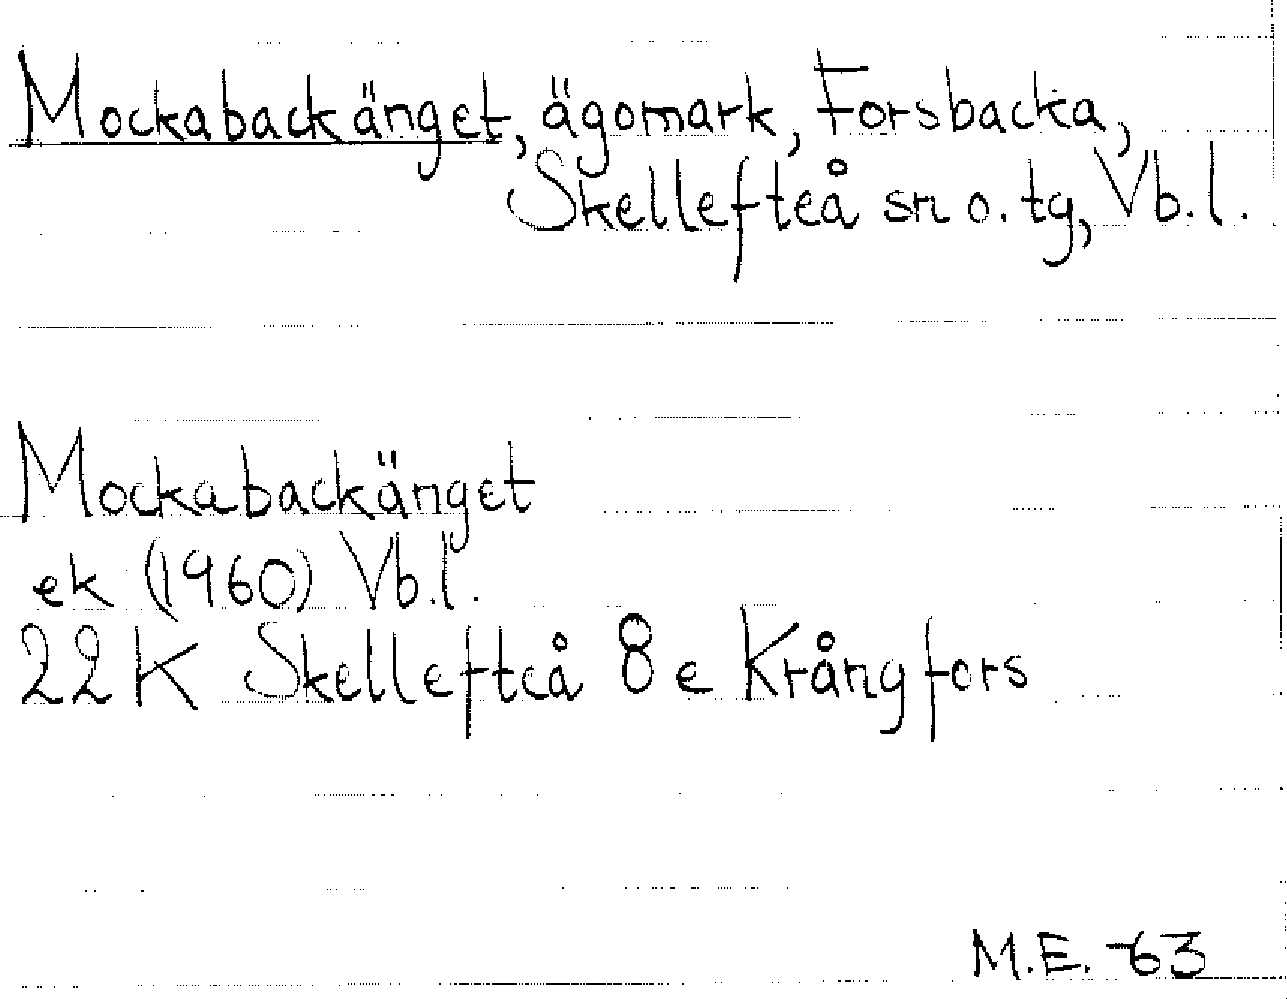 Mockabackänget, ägomark, Forsbacka,
Skellefteå sn o. tg, Vb.l.
Mockabackänget
ek (1960) Vb.l.
22K Skellefteå 8e Krångfors
M.E. -63